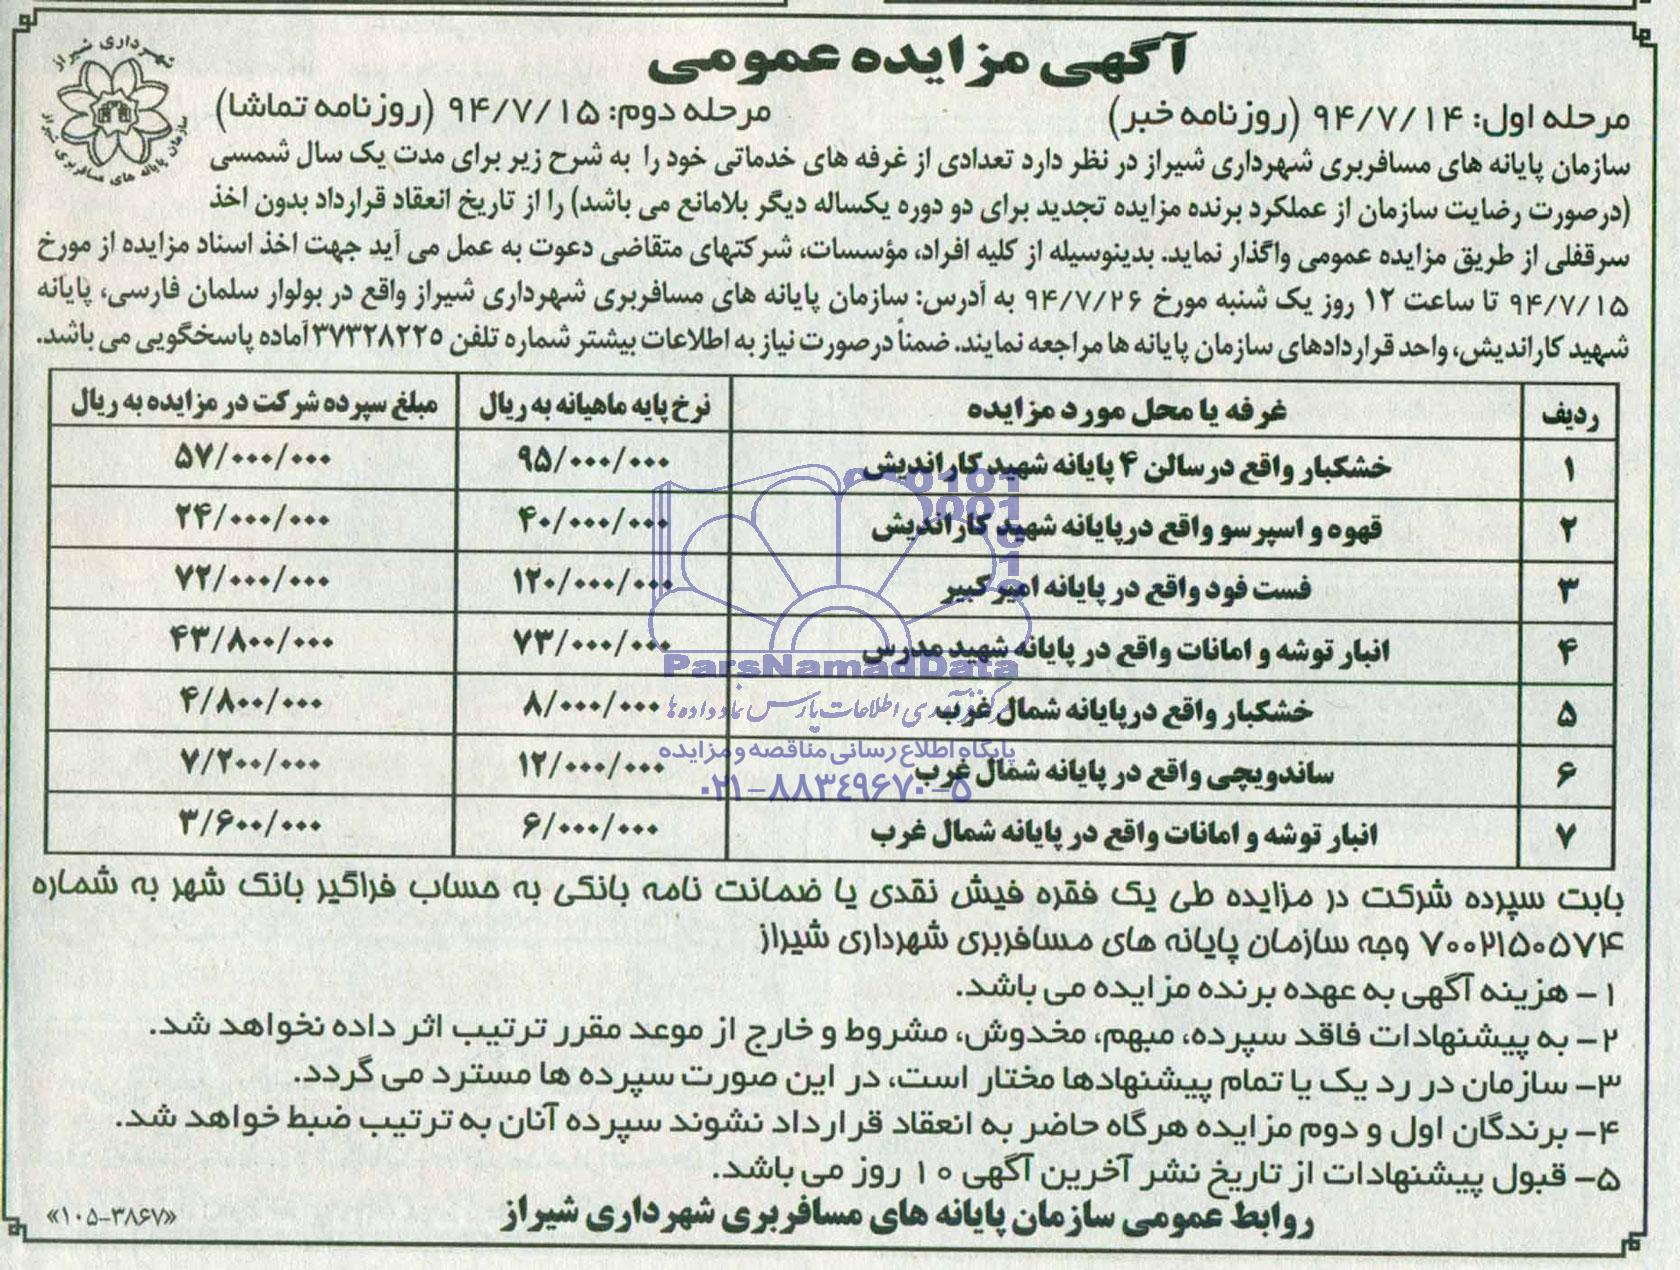 آگهی مزایده عمومی
شهرداری شیراز
سازمان پایانه های مسافربری شیراز
مرحله اول: ۹۴/۷/۱۴ (روزنامه خبر) مرحله دوم: ۹۴/۷/۱۵ (روزنامه تماشا)
سازمان پایانه های مسافربری شهرداری شیراز در نظر دارد تعدادی از غرفه های خدماتی خود را به شرح زیر برای مدت یک سال شمسی
(درصورت رضایت سازمان از عملکرد برنده مزایده تجدید برای دو دوره یکساله دیگر بلامانع می باشد) را از تاریخ انعقاد قرارداد بدون اخذ
سرقفلی از طریق مزایده عمومی واگذار نماید. بدینوسیله از کلیه افراد، مؤسسات، شرکتهای متقاضی دعوت به عمل می آید جهت اخذ اسناد مزایده از مورخ
۹۴/۷/۱۵ تا ساعت ۱۲ روز یک شنبه مورخ ۹۴/۷/۲۶ به آدرس: سازمان پایانه های مسافربری شهرداری شیراز واقع در بولوار سلمان فارسی، پایانه
شهید کاراندیش، واحد قراردادهای سازمان پایانه ها مراجعه نمایند. ضمناً درصورت نیاز به اطلاعات بیشتر شماره تلفن ۳۷۳۲۸۲۲۵ آماده پاسخگویی می باشد.
ردیف غرفه یا محل مورد مزایده نرخ پایه ماهیانه به ریال مبلغ سپرده شرکت در مزایده به ریال
۱ خشکبار واقع درسالن ۴ پایانه شهید کاراندیش ۹۵/۰۰۰/۰۰۰ ۵۷/۰۰۰/۰۰۰
۲ قهوه و اسپرسو واقع درپایانه شهید کاراندیش ۴۰/۰۰۰/۰۰۰ ۲۴/۰۰۰/۰۰۰
۳ فست فود واقع در پایانه امیرکبیر ۱۲۰/۰۰۰/۰۰۰ ۷۲/۰۰۰/۰۰۰
۴ انبار توشه و امانات واقع در پایانه شهید مدرس ۷۳/۰۰۰/۰۰۰ ۴۳/۸۰۰/۰۰۰
۵ خشکبار واقع درپایانه شمال غرب ۸/۰۰۰/۰۰۰ ۴/۸۰۰/۰۰۰
۶ ساندویچی واقع در پایانه شمال غرب ۱۲/۰۰۰/۰۰۰ ۷/۲۰۰/۰۰۰
۷ انبار توشه و امانات واقع در پایانه شمال غرب ۶/۰۰۰/۰۰۰ ۳/۶۰۰/۰۰۰
ParsNamadData
مرکز فرآوری اطلاعات پارس نماد داده ها
پایگاه اطلاع رسانی مناقصه و مزایده
۰۲۱-۸۸۳۴۹۶۷۰-۵
بابت سپرده شرکت در مزایده طی یک فقره فیش نقدی یا ضمانت نامه بانکی به حساب فراگیر بانک شهر به شماره
۷۰۰۲۱۵۰۵۷۴ وجه سازمان پایانه های مسافربری شهرداری شیراز
۱- هزینه آگهی به عهده برنده مزایده می باشد.
۲- به پیشنهادات فاقد سپرده، مبهم، مخدوش، مشروط و خارج از موعد مقرر ترتیب اثر داده نخواهد شد.
۳- سازمان در رد یک یا تمام پیشنهادها مختار است، در این صورت سپرده ها مسترد می گردد.
۴- برندگان اول و دوم مزایده هرگاه حاضر به انعقاد قرارداد نشوند سپرده آنان به ترتیب ضبط خواهد شد.
۵- قبول پیشنهادات از تاریخ نشر آخرین آگهی ۱۰ روز می باشد.
روابط عمومی سازمان پایانه های مسافربری شهرداری شیراز
«۱۰۵-۳۸۶۷»